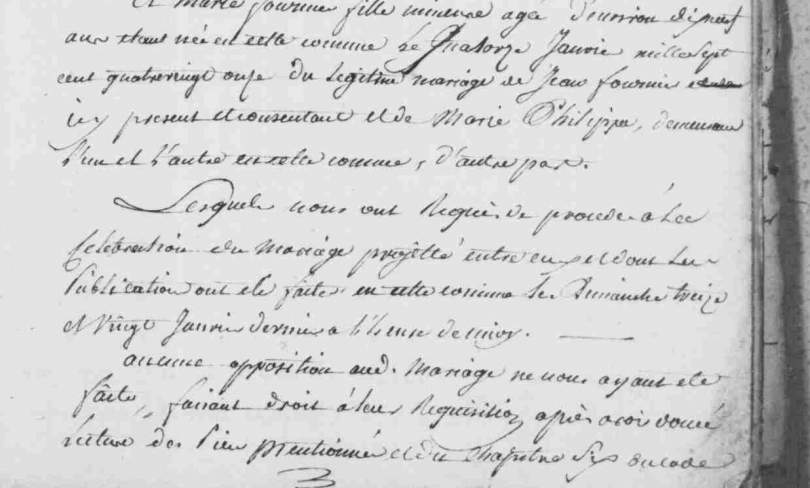 et Marie fournier fille mineure agée d'environ dixneuf
ans etant née en cette comune Le Quatorze Janvier mille sept
cent quatrevingt onze du Legitime mariage de Jean fournier
icy present et consentant et de Marie Philippe, demeurant
l'un et l'autre en cette comune, d'autre part.
Lesquels nous ont Requis de proceder à La
Celebration du Mariage projetté entre eux et dont les
Publication ont eté faite en cette comune le Dimanche treize
et vingt Janvier dernier a l'heure de midy.
aucune opposition aud. Mariage ne nous ayant eté
faite, faisant droit à leur Requisition après avoir donné
lecture des Pieces mentionnées et du Chapitre Six du Code